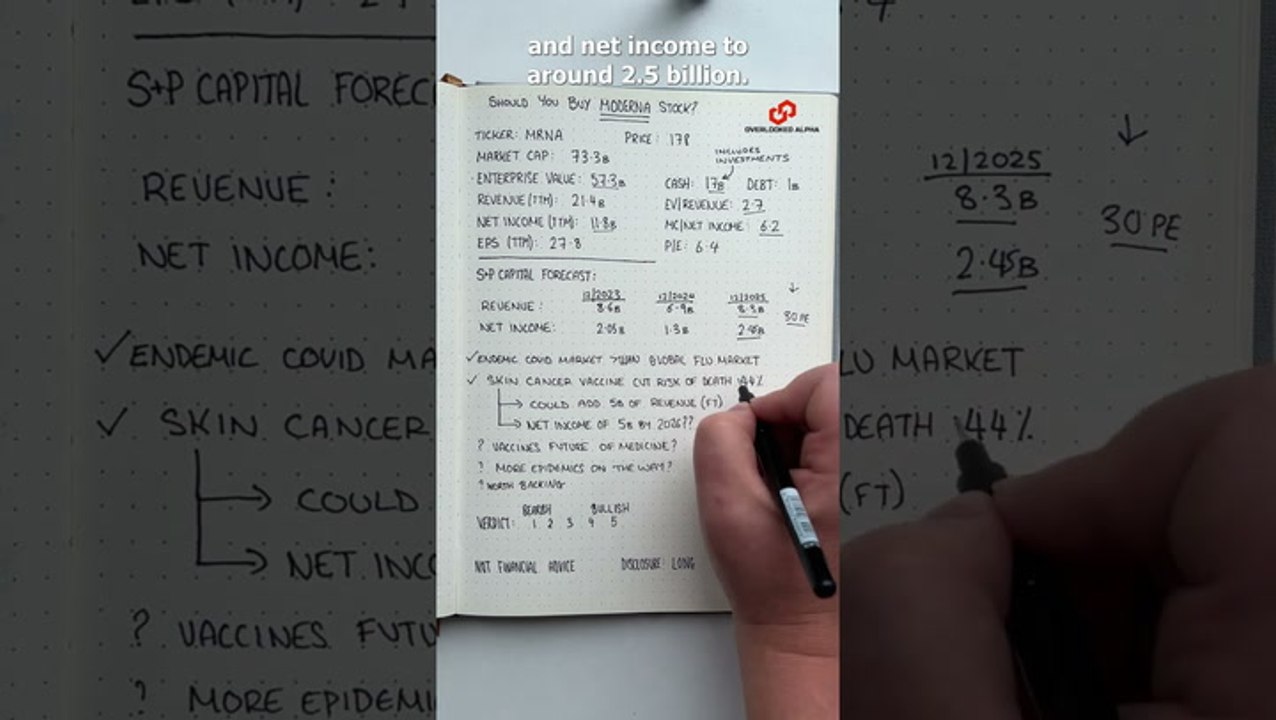 and net income to
around 2.5 billion.
SHOULD YOU BUY MODERNA STOCK?
OVERLOOKED ALPHA
TICKER: MRNA PRICE: 178
MARKET CAP: 73.3B
INCLUDES INVESTMENTS
ENTERPRISE VALUE: 57.3B CASH: 17B DEBT: 1B
REVENUE (TTM): 21.4B EV/REVENUE: 2.7
NET INCOME (TTM): 11.8B MC/NET INCOME: 6.2
EPS (TTM): 27.8 P/E: 6.4
S+P CAPITAL FORECAST:
12/2023 12/2024 12/2025
REVENUE: 8.6B 6.9B 8.3B
30 PE
NET INCOME: 2.05B 1.3B 2.45B
✓ ENDEMIC COVID MARKET > THAN GLOBAL FLU MARKET
✓ SKIN CANCER VACCINE CUT RISK OF DEATH 44%
COULD ADD 5B OF REVENUE (FT)
NET INCOME OF 5B BY 2026??
? VACCINES FUTURE OF MEDICINE?
? MORE EPIDEMICS ON THE WAY?
? WORTH BACKING
BEARISH BULLISH
VERDICT: 1 2 3 4 5
NOT FINANCIAL ADVICE DISCLOSURE: LONG
S+P CAPITAL FOREC
REVENUE:
NET INCOME:
✓ ENDEMIC COVID MA
✓ SKIN CANCER
COULD
NET INC
? VACCINES FUTU
? MORE EPIDEMI
12/2025
8.3B
30 PE
2.45B
LU MARKET
DEATH 44%
(FT)